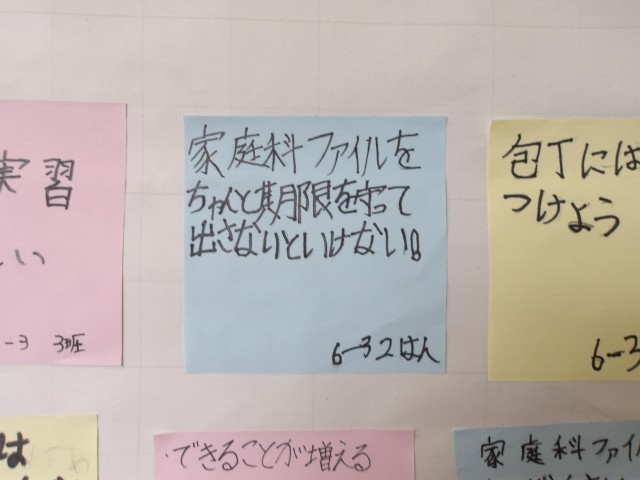 実習
しい
-3 3班
家庭科ファイルを
ちゃんと期限を守って
出さないといけない!
6-3 2はん
包丁には
つけよう
6-3
は
・できることが増える
家庭科ファイル